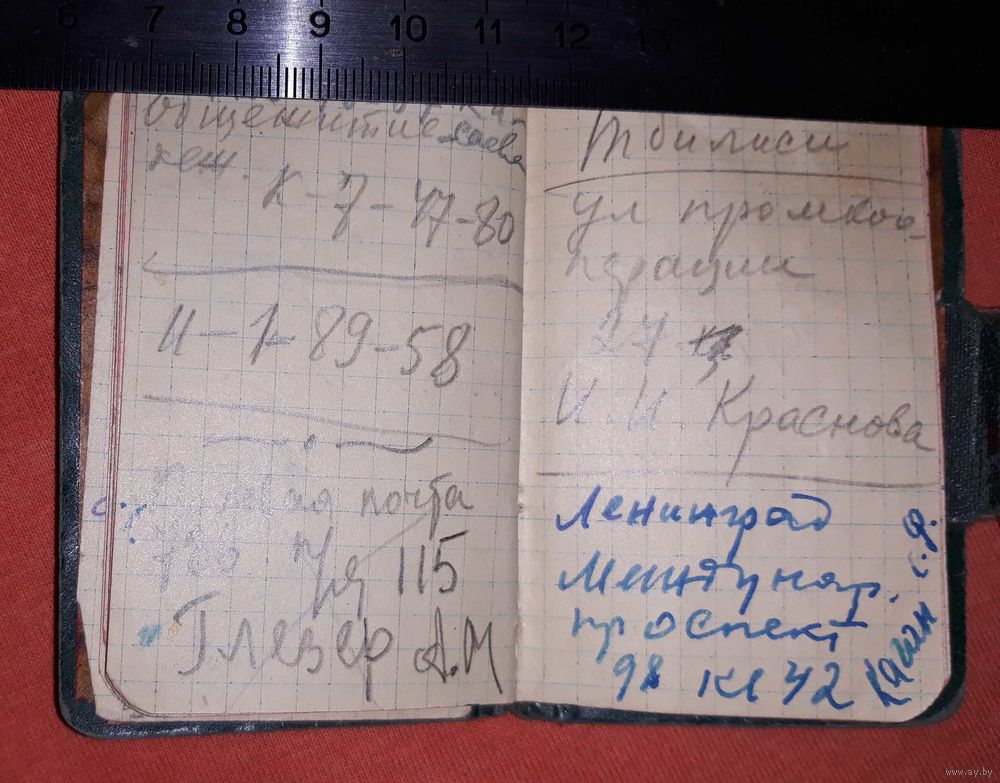 6 7 8 9 10 11 12 13
общежитие
К-7-47-80
И-1-89-58
почта
п/я 115
Глезер А.М
Тбилиси
ул промкоо-
перации
27
И.И. Краснова
Ленинград
Междунар.
проспект
98 кв 42
Каган с.Ф.
www.ay.by